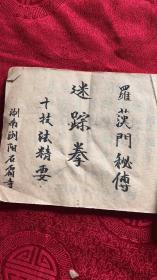 羅茨門秘傳
迷踪拳
十技法精要
湖南浏阳石霜寺